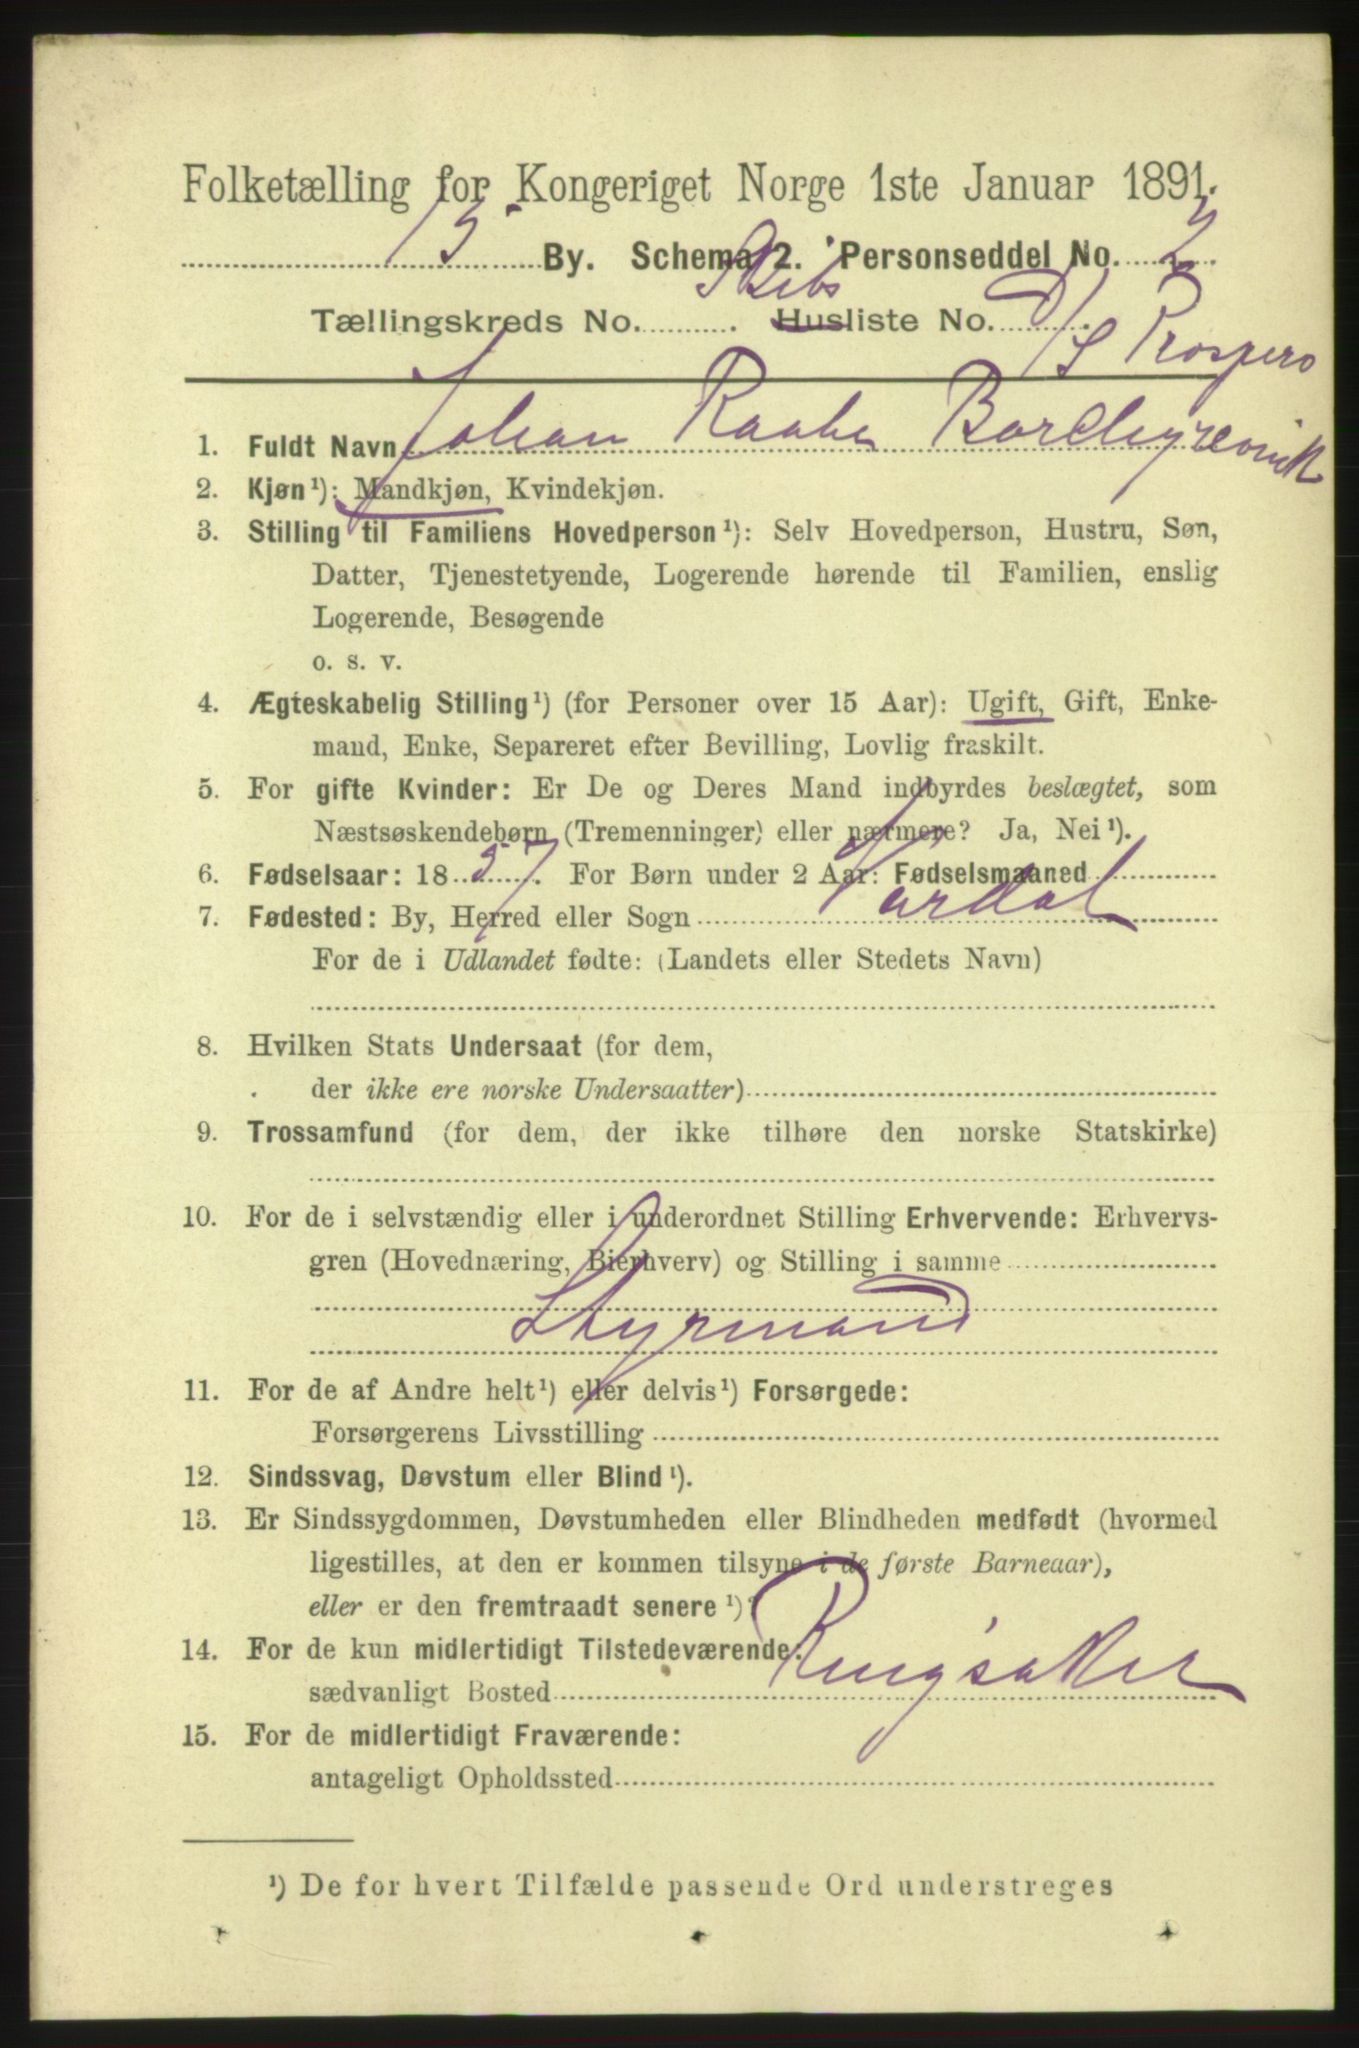 Folketælling for Kongeriget Norge 1ste Januar 1891.
By. Schema 2. Personseddel No. 2
Skibs
Tællingskreds No. ........... Husliste No. D/S Prospero
1. Fuldt Navn Johan Raabe
2. Kjøn ¹): Mandkjøn, Kvindekjøn.
3. Stilling til Familiens Hovedperson ¹): Selv Hovedperson, Hustru, Søn,
Datter, Tjenestetyende, Logerende hørende til Familien, enslig
Logerende, Besøgende
o. s. v.
4. Ægteskabelig Stilling ¹) (for Personer over 15 Aar): Ugift, Gift, Enke-
mand, Enke, Separeret efter Bevilling, Lovlig fraskilt.
5. For gifte Kvinder: Er De og Deres Mand indbyrdes beslægtet, som
Næstsøskendebørn (Tremenninger) eller nærmere? Ja, Nei ¹).
6. Fødselsaar: 1857. For Børn under 2 Aar: Fødselsmaaned
7. Fødested: By, Herred eller Sogn Vardal
For de i Udlandet fødte: (Landets eller Stedets Navn)
8. Hvilken Stats Undersaat (for dem,
der ikke ere norske Undersaatter)
9. Trossamfund (for dem, der ikke tilhøre den norske Statskirke)
10. For de i selvstændig eller i underordnet Stilling Erhvervende: Erhvervs-
gren (Hovednæring, Bierhverv) og Stilling i samme
Styrmand
11. For de af Andre helt ¹) eller delvis ¹) Forsørgede:
Forsørgerens Livsstilling
12. Sindssvag, Døvstum eller Blind ¹).
13. Er Sindssygdommen, Døvstumheden eller Blindheden medfødt (hvormed
ligestilles, at den er kommen tilsyne i de første Barneaar),
eller er den fremtraadt senere ¹)?
14. For de kun midlertidigt Tilstedeværende:
sædvanligt Bosted Ringsaker
15. For de midlertidigt Fraværende:
antageligt Opholdssted
¹) De for hvert Tilfælde passende Ord understreges